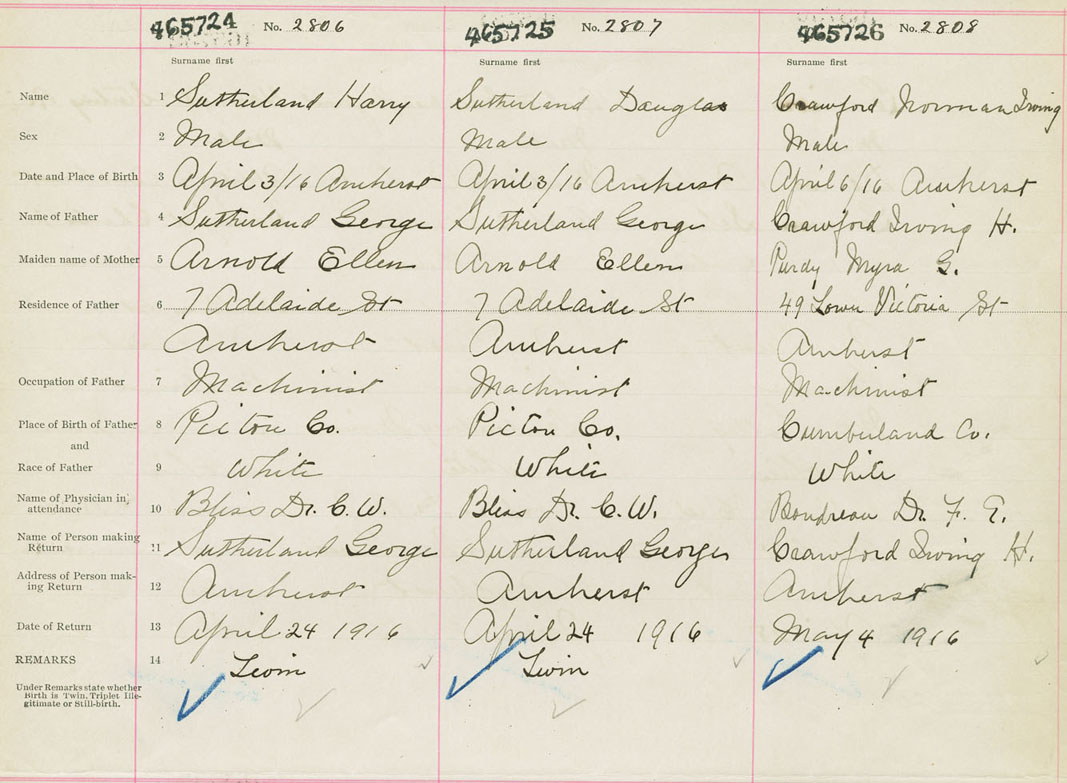 465724 No. 2806 465725 No. 2807 465726 No. 2808
Surname first Surname first Surname first
Name 1 Sutherland Harry Sutherland Douglas Crawford Norman Irving
Sex 2 Male Male Male
Date and Place of Birth 3 April 3/16 Amherst April 3/16 Amherst April 6/16 Amherst
Name of Father 4 Sutherland George Sutherland George Crawford Irving H.
Maiden name of Mother 5 Arnold Ellen Arnold Ellen Purdy Myra G.
Residence of Father 6 7 Adelaide St 7 Adelaide St 49 Lower Victoria St
Amherst Amherst Amherst
Occupation of Father 7 Machinist Machinist Machinist
Place of Birth of Father 8 Pictou Co. Pictou Co. Cumberland Co.
and
Race of Father 9 White White White
Name of Physician in
attendance 10 Bliss Dr. C. W. Bliss Dr. C. W. Boudreau Dr. F. E.
Name of Person making
Return 11 Sutherland George Sutherland George Crawford Irving H.
Address of Person mak-
ing Return 12 Amherst Amherst Amherst
Date of Return 13 April 24 1916 April 24 1916 May 4 1916
REMARKS 14 Twin Twin
Under Remarks state whether
Birth is Twin, Triplet Ille-
gitimate or Still-birth.